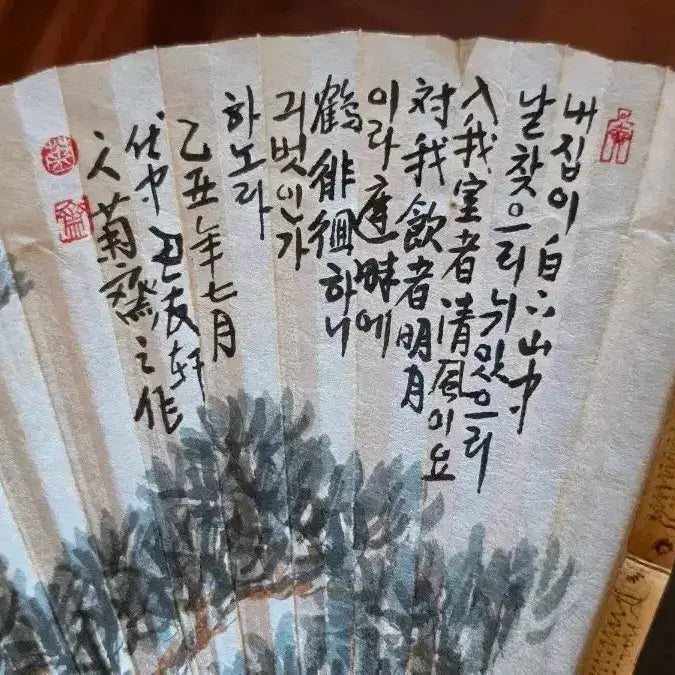 내집이 白 山中
날찾으리 뉘있으리
入我室者 清風이요
対我飲者 明月
이라 庭畔에
鶴 徘徊하니
긔벗인가
하노라
乙丑年七月
伏中 友軒
人菊齋之作
菊
齋